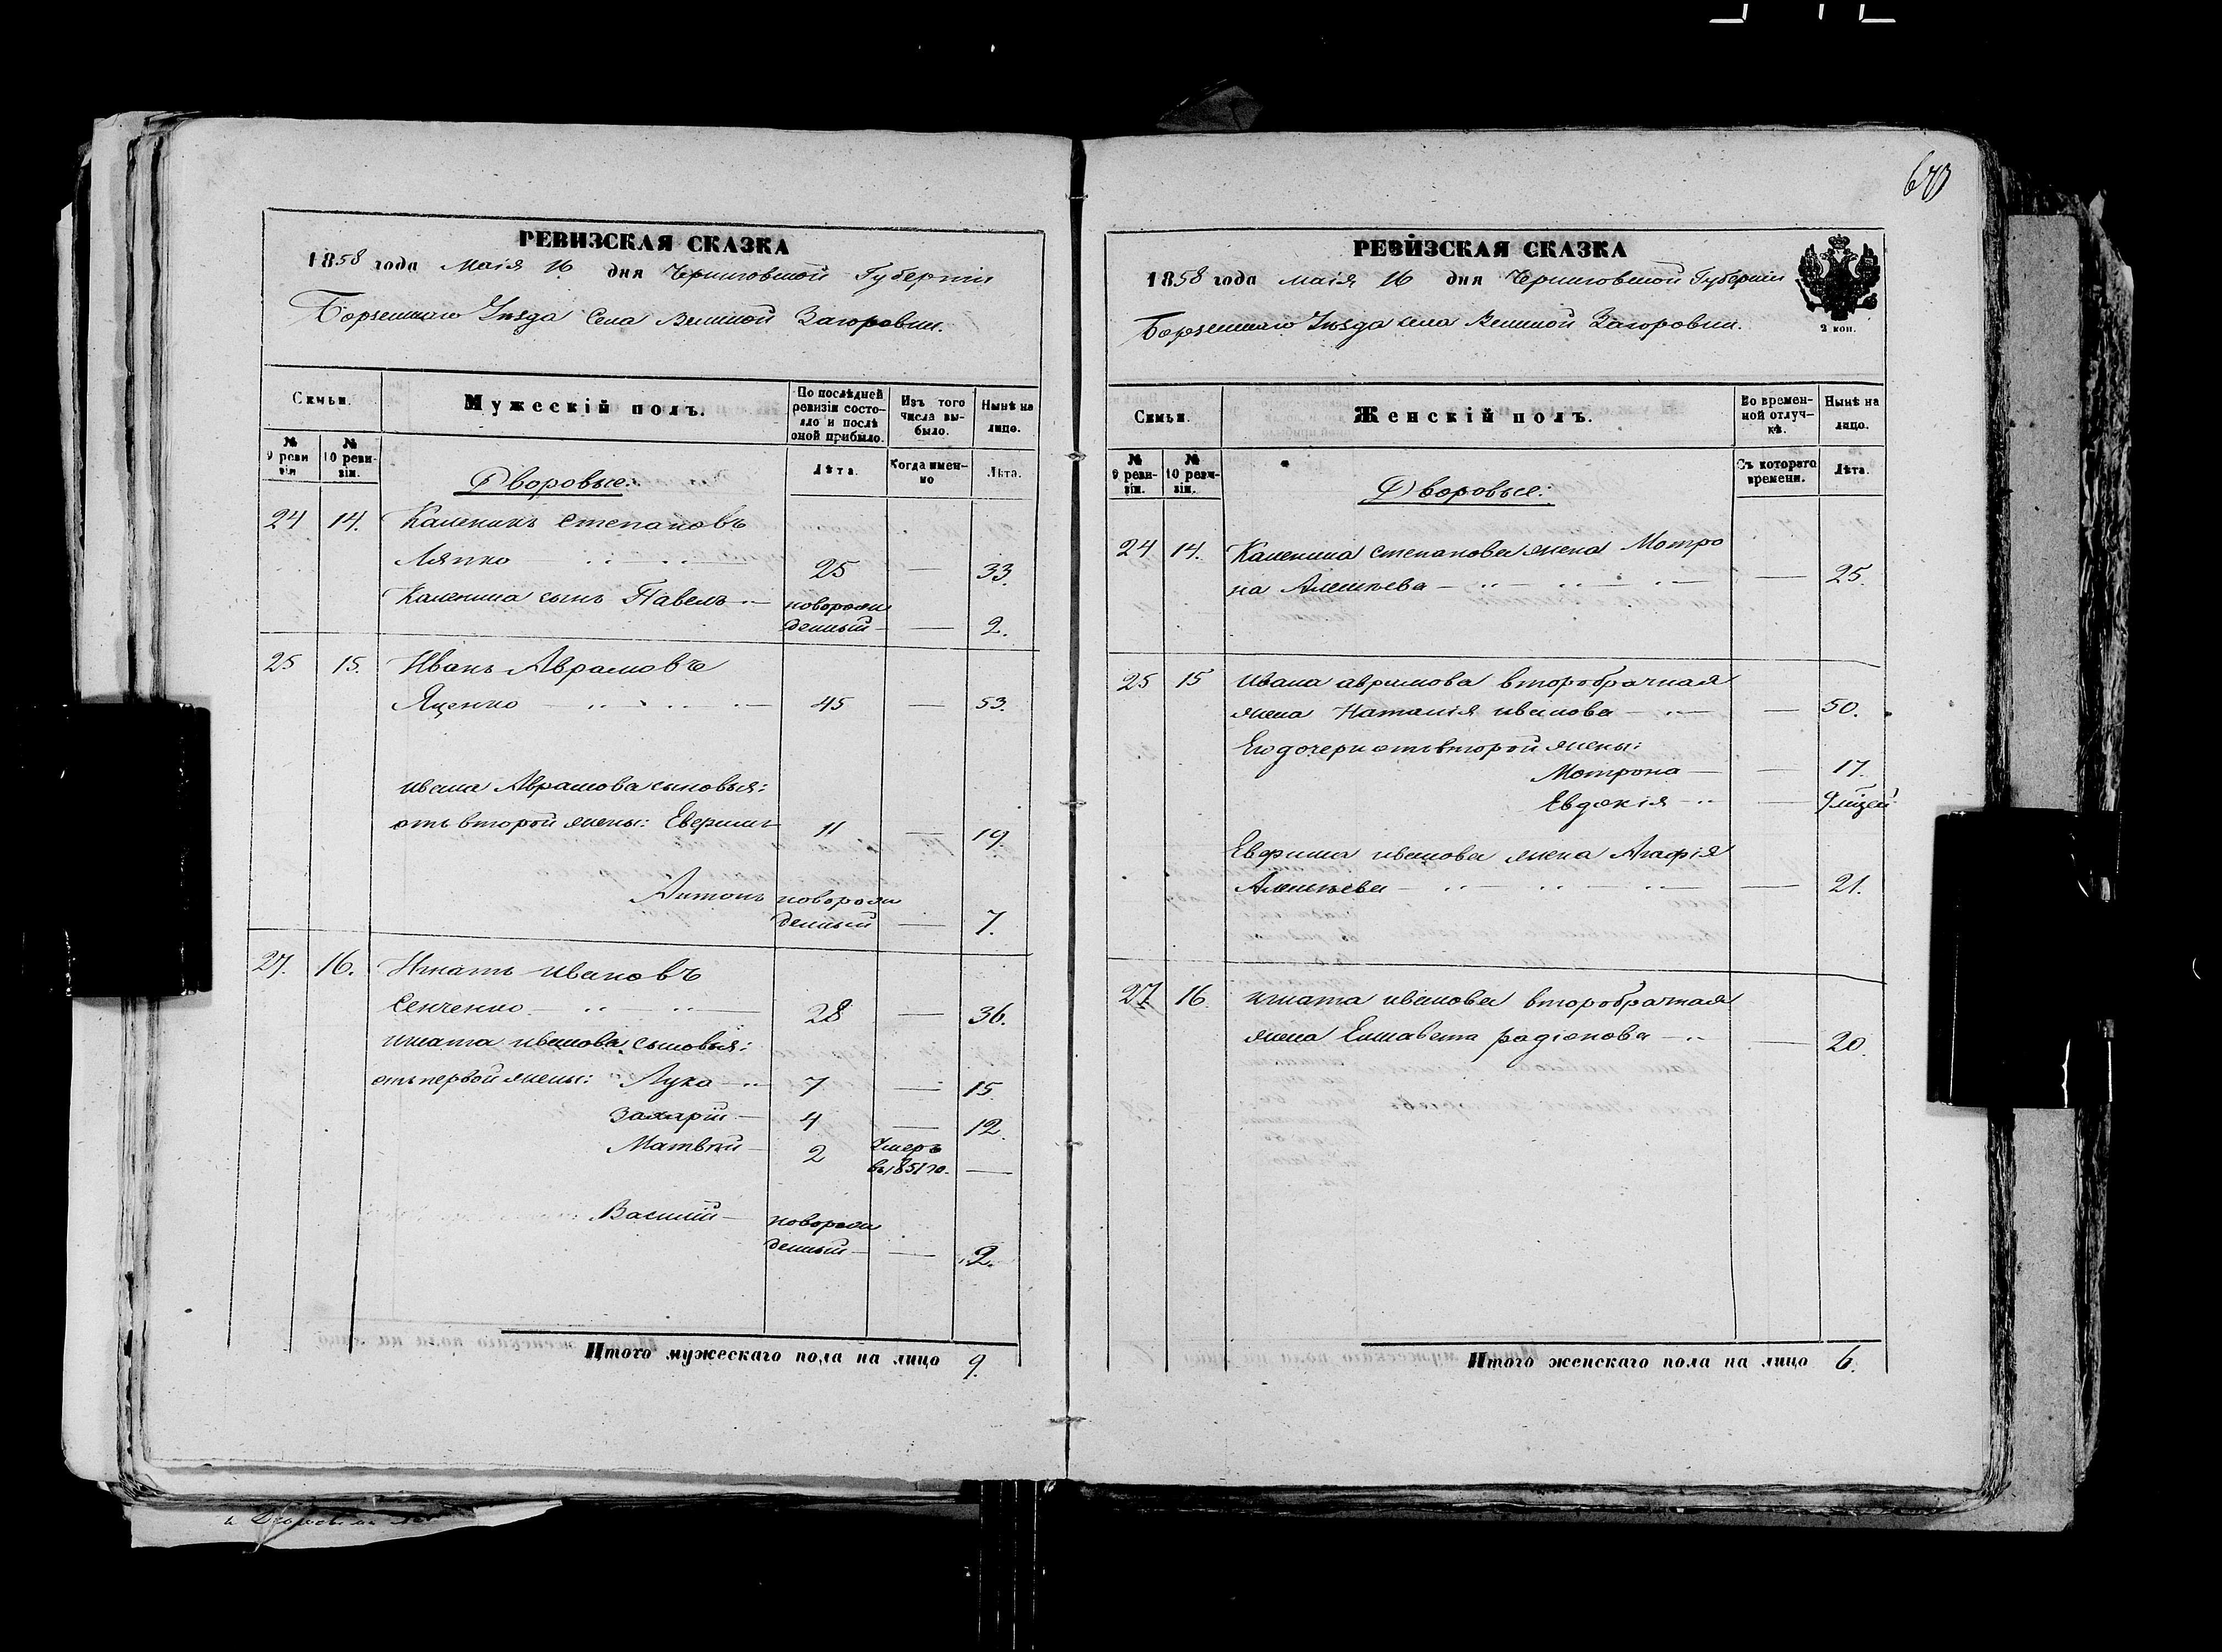 673
РЕВИЗСКАЯ СКАЗКА
1858 года Маія 16 дня Черниговской Губерніи
Борзенскаго Уѣзда Села Великой Загоровки.
Семьи. Мужескій полъ. По послѣдней ревизіи состояло и послѣ оной прибыло. Изъ того числа выбыло. Нынѣ на лицо.
№ 9 ревизіи № 10 ревизіи. Лѣта. Когда именно Лѣта.
Дворовые:
24 14. Каленикъ Степановъ
Ляпко 25 — 33
Каленика сынъ Павелъ новорож
денный — 2.
25 15. Иванъ Аврамовъ
Яценко 45 — 53.
ивана Аврамова сыновья:
отъ второй жены: Евфимъ 11 — 19.
Антонъ новорож
денный — 7.
27. 16. Игнатъ ивановъ
Сенченко 28 — 36.
игната иванова сыновья:
отъ первой жены: Лука 7 — 15
Захарій 4 — 12.
Матвѣй 2 Умеръ
въ 1851 го. —
Василій новорож
денный — 2.
Итого мужескаго пола на лицо 9.
РЕВИЗСКАЯ СКАЗКА
1858 года маія 16 дня Черниговской Губерніи
Борзенскаго Уѣзда села Великой Загоровки.
2 коп.
Семьи. Женскій полъ. Во временной отлучкѣ. Нынѣ на лицо.
№ 9 ревизіи. № 10 ревизіи. Съ котораго времени. Лѣта.
Дворовые:
24 14. Каленика степанова жена Мотро
на Алексѣева — 25.
25 15 ивана аврамова второбрачная
жена Наталія иванова — 50.
Его дочери отъ второй жены:
Мотрона — 17.
Евдокія — 9 мѣсяц
Евфима иванова жена Агафія
Алексѣева — 21.
27 16 игната иванова второбрачная
жена Елисавета радіонова — 20.
Итого женскаго пола на лицо 6.